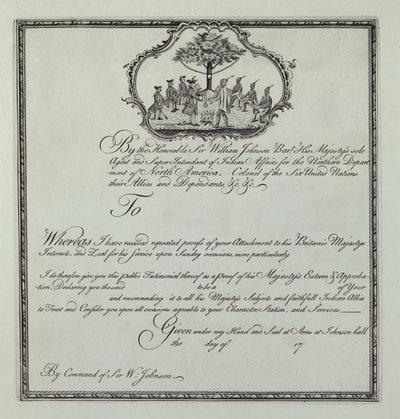 By the Honorable Sir William Johnson Bart. His Majesty's sole
Agent and Super Intendant of Indian Affairs for the Northern Depart
ment of North America, Colonel of the Six United Nations
their Allies and Dependants &c. &c.
To
Whereas I have received repeated proofs of your Attachment to his Britanic Majestys
Interests, and Zeal for his service upon Sundry occasions, more particularly
I do therefore give you this public Testimonial thereof as a proof of his Majesty's Esteem & Approba
tion, Declaring you the said to be a of Your
and recommending it to all his Majesty's Subjects and faithfull Indian Allies
to Treat and Consider you upon all occasions agreable to your Character, Station, and Services
Given under my Hand and Seal at Arms at Johnson hall
the day of 17
By Command of Sir W: Johnson.